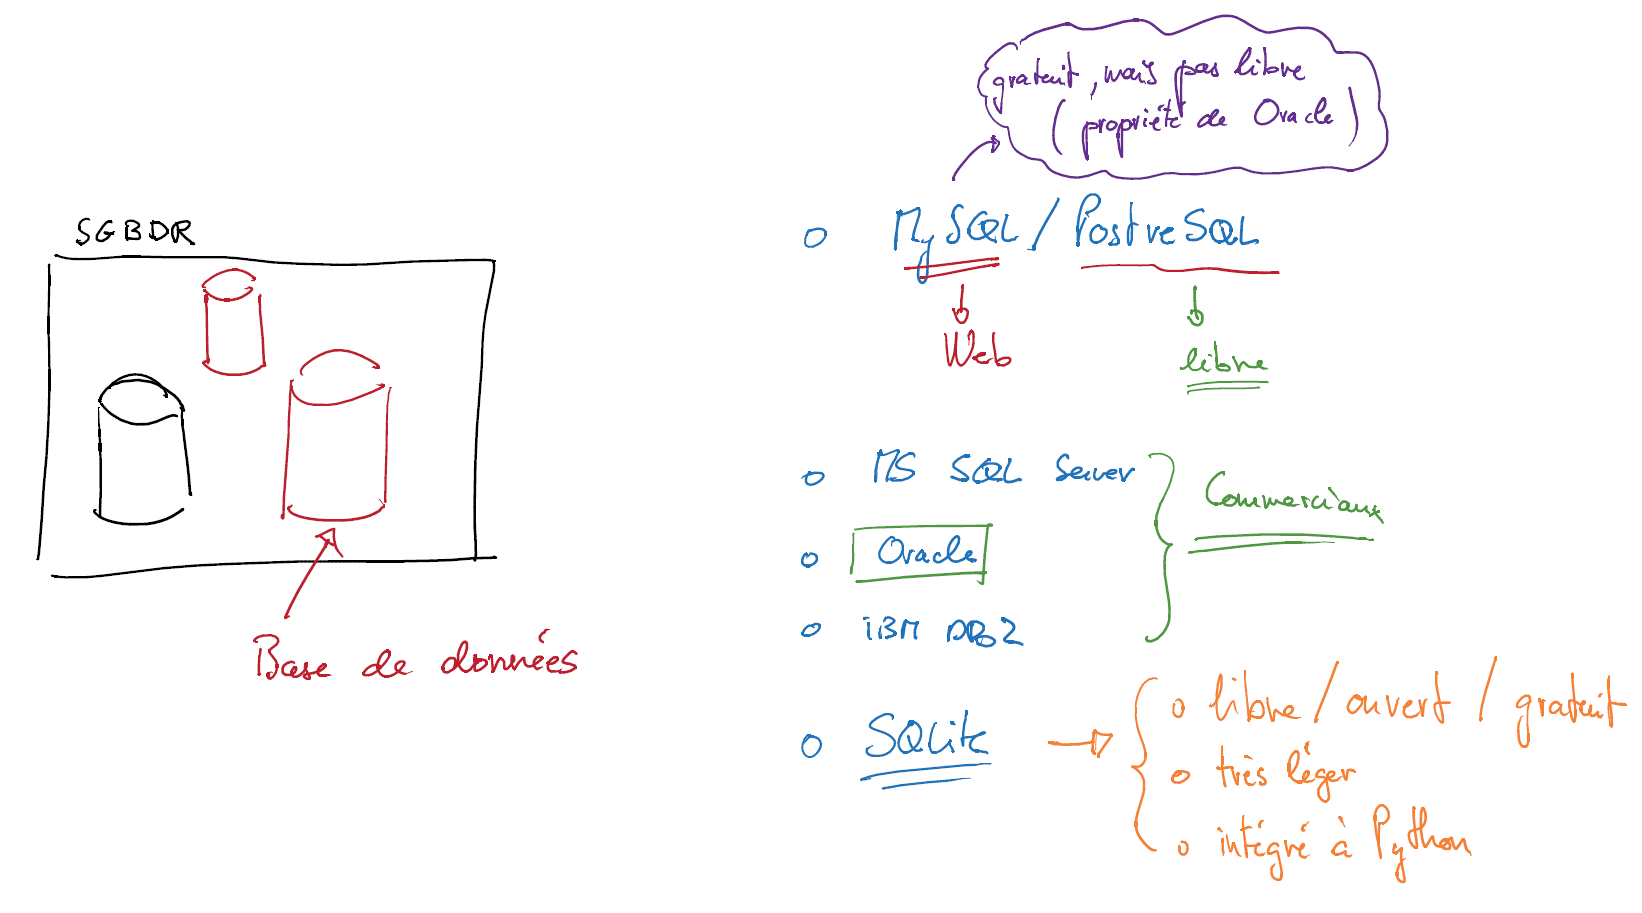 SGBDR
Base de données
gratuit, mais pas libre
(propriété de Oracle)
o MySQL / PostreSQL
Web
libre
o MS SQL Server
o Oracle
o iBM DB2
Commerciaux
o SQLite
o libre / ouvert / gratuit
o très léger
o intégré à Python